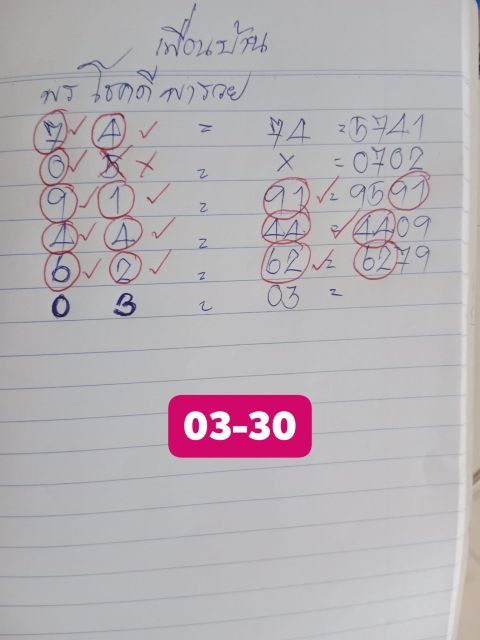 เพื่อนบ้าน
พร โชคดี พารวย
7 4 = 74 = 5741
0 5 x = x = 0702
9 1 = 91 = 9591
4 4 = 44 = 4409
6 2 = 62 = 6279
0 3 = 03 =
03-30